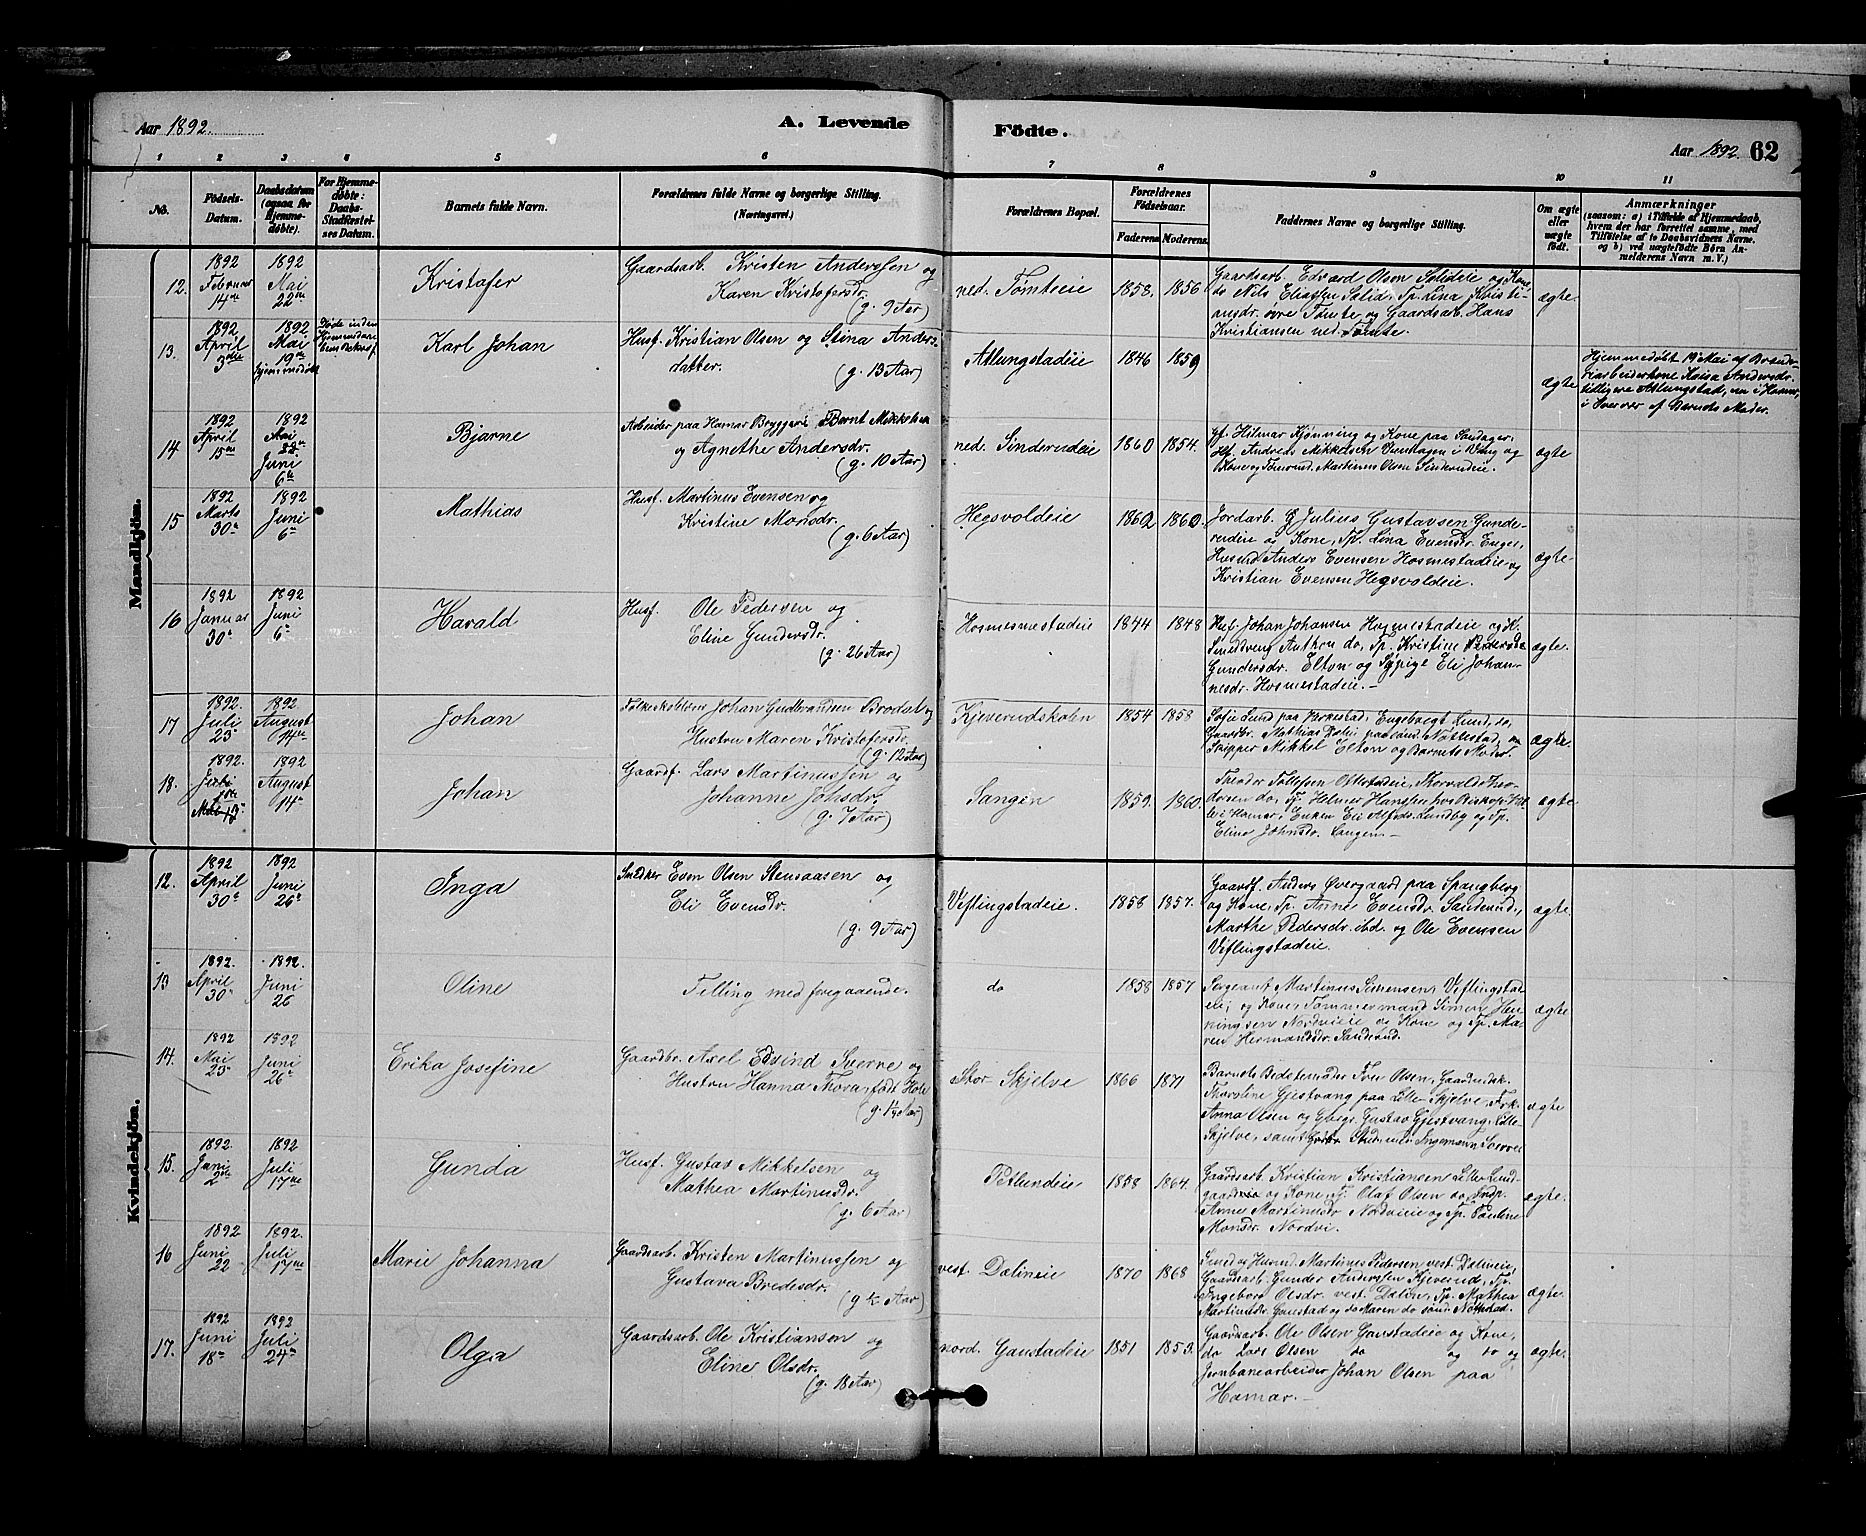 Aar 1892.
A. Levende Födte.
Aar 1892. 62
1 2 3 4 5 6 7 8 9 10 11
No.
Födsels-Datum.
Daabsdatum (ogsaa for Hjemmedöbte).
For Hjemmedöbte: Daabs-Stadfæstelses Datum.
Barnets fulde Navn.
Forældrenes fulde Navne og borgerlige Stilling. (Næringsvei.)
Forældrenes Bopæl.
Forældrenes Födselsaar.
Faderens Moderens.
Faddernes Navne og borgerlige Stilling.
Om ægte eller uægte födt.
Anmærkninger
(saasom: a) i Tilfælde af Hjemmedaab, hvem der har forrettet samme, med Tilföielse af to Daabsvidners Navne. og b) ved uægtefödte Börn Anmelderens Navn m. V.)
Mandkjön.
12. 1892 Februar 14de
1892 Mai 22de
Kristofer
Gaardsarb. Kristen Anderssen og
Karen Kristofersdr.
(g. 9 Aar)
ned. Tømteeie
1858. 1856
Gaardsarb. Edvard Olsen Solideie og Kone,
do Nils Eliassen Solid, Tp. Lina Kristi-
ansdr. øvre Tømte og Gaardsarb. Hans
Kristiansen ned. Tømte.
ægte
13. 1892 April 3die
1892 Mai 19de hjemmedøbt
Karl Johan
Husf. Kristian Olsen og Stina Anders-
datter.
(g. 13 Aar)
Atlungstadeie
1846 1859
ægte
Hjemmedøbt 19 Mai af Brænde-
riarbeiderkone Kaisa Andersdr.
tilligere Atlungstad, nu i Hamar,
i Nærvær af Barnets Moder.
14 1892 April 15de
1892 Mai 22de Juni 6te
Bjarne
Arbeider paa Hamar Bryggeri Bernt Mikkelsen
og Agnethe Andersdr.
(g. 10 Aar)
ned. Sinderudeie
1860 1854.
Gf. Hilmar Kjønning og Kone paa Sandager,
Hf. Andreas Mikkelsen i Vang og
Kone og Martinus Olsen Sinderudeie.
ægte
15 1892 Marts 30te
1892 Juni 6te
Mathias
Husf. Martinus Evensen og
Kristine Monsdr.
(g. 6 Aar)
Hegsvoldeie
1862 1860.
Jordarb. Julius Gustavsen Gunde-
rudeie og Kone, Tp. Lina Evensdr. Enger,
Husmd Anders Evensen Hosmestadeie og
Kristian Evensen Hegsvoldeie.
ægte
16 1892 Januar 30te
1892 Juni 6te
Harald
Husf. Ole Pedersen og
Eline Gundersdr.
(g. 26 Aar)
Hosmesmestadeie
1844 1848
Husf. Johan Johansen Hosmestadeie og H.
Smeddreng Anthon do, Tp. Kristine
Gundersdr. Elton og Sypige Eli Johan-
nesdr. Hosmestadeie.
ægte.
17 1892. Juli 23de
1892. August 14de
Johan
Folkeskolelærer Johan Gudbrandsen Brodal og
Hustru Maren Kristofersdr.
(g. 12 Aar)
Kjeverudskolen
1854 1858
Sofie Lund paa Børkestad, Engebregt Lund, do,
Gaardbr. Mathias Dølie paa sønd. Nøttestad,
Skipper Mikkel Elton og Barnets Moder.
ægte.
18. 1892. Juli
1892 August 14de
Johan
Gaardf. Lars Martinussen og
Johanne Johsdr.
(g. 7 Aar)
Sangen
1859. 1860.
Theodor Tollefsen Ottestadeie, Thorvald Theo-
dorsen do, Tj. Helmer Hanssen hos Biskop Hil-
le i Hamar, Enken Eli Alfsdr. Lundby og Tp.
Eline Johnsdr. Sangen.
ægte
Kvindekjön.
12. 1892 April 30te
1892 Juni 26de
Inga
Snedker Even Olsen Stensaasen og
Eli Evensdr.
(g. 9 Aar)
Viflingstadeie.
1858 1857.
Gaardf. Anders Øvergaard paa Spangberg
og Kone, Tp. Anne Evensdr. Sanderud,
Marthe Pedersdr. ibd. og Ole Evensen
Viflingstadeie.
ægte
13 1892. April 30te
1892. Juni 26
Oline
Tvilling med foregaaende.
do
1858 1857
Sergeant Martinus Simensen, Viflingstad-
eie, og Kone, Tømmermand Simen Hen-
ningsen Nordvieie og Kone og Tp. Ma-
ren Hermandsdr. Sanderud.
ægte
14. 1892 Mai 23de
1892 Juni 26de
Erika Josefine
Gaardbr. Axel Edvind Sverre og
Hustru Hanna Thora, født Hole
(g. 1½ Aar)
Stor Skjelve
1866 1871
Barnets Bedstemoder Fru Olsen, Gaardmdsk.
Thoroline Gjestvang paa Lille Skjelve, Frk.
Anna Olsen og Gbrgr. Gustav Gjestvang, Lille
Skjelve, samt Ingemann Sverre
ægte
15. 1892 Juni 2den
1892 Juli 17de
Gunda
Husf. Gustav Mikkelsen og
Mathea Martinusdr.
(g. 6 Aar)
Petlundeie
1858 1864.
Gaardsarb. Kristian Kristiansen Lille Lund-
gaard og Kone, Tj. Olaf Olsen do, Indp.
Anne Martinusdr Nordvieie og Tp. Pauline
Monsdr. Nordvi.
ægte.
16 1892 Juni 22
1892. Juli 17de
Marie Johanna
Gaardsarb. Kristen Martinussen og
Gustava Bredesdr.
(g ½ Aar)
vest. Dælineie
1870 1868
Smed og Husmd. Martinus Pedersen vest. Dælineie,
Gaardsarb. Gunder Anderssen Kjeverud, Tp.
Ingeborg Olsdr. vest. Dælin, Tp. Mathea
Martinusdr. Gaustad og do Maren do sønd. Nøttestad.
ægte.
17. 1892 Juni 18de
1892 Juli 24de
Olga
Gaardsarb. Ole Kristiansen og
Eline Olsdr.
(g. 18 Aar)
nord. Gaustadeie
1851 1853.
Gaardsarb. Ole Olsen Gaustadeie og Kone,
do Lars Olsen do og do og
Jernbanearbeider Johan Olsen paa
Hamar.
ægte.